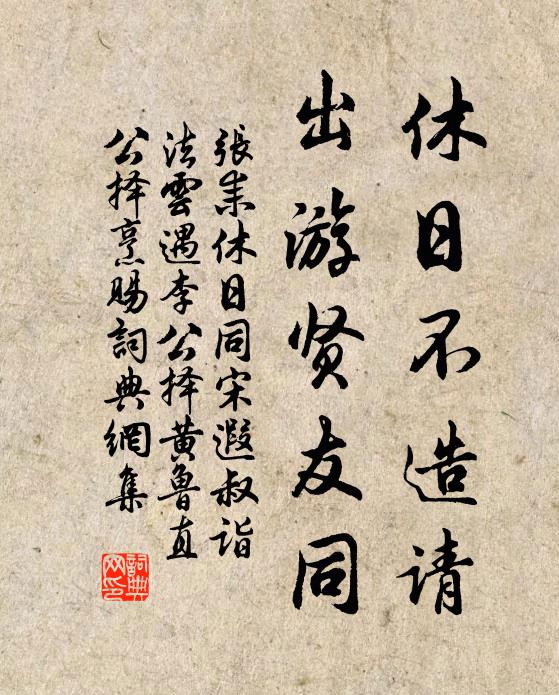 休日不造请
出游贤友同
張耒休日同宋遐叔诣
法雲遇李公择黄鲁直
公择烹赐詞典網集
詞典网印